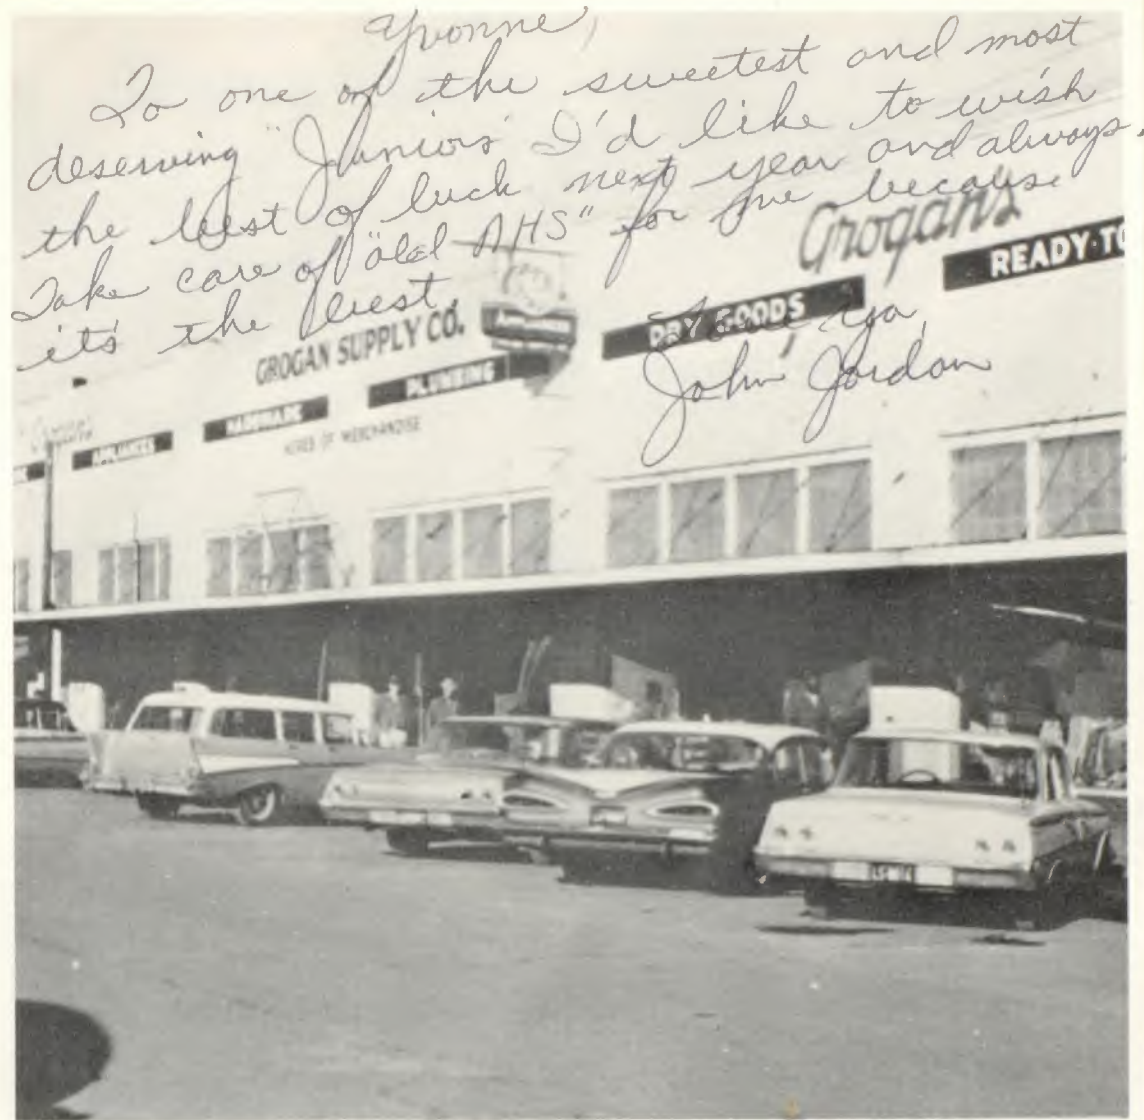 Yvonne,
To one of the sweetest and most
deserving "Juniors" I'd like to wish
the best of luck next year and always.
Take care of "old AHS" for me because
it's the best.
Love ya,
John Jordan
Grogan's
READY-TO
DRY GOODS
GROGAN SUPPLY CO.
APPLIANCES
PLUMBING
HARDWARE
APPLIANCES
ACRES OF MERCHANDISE